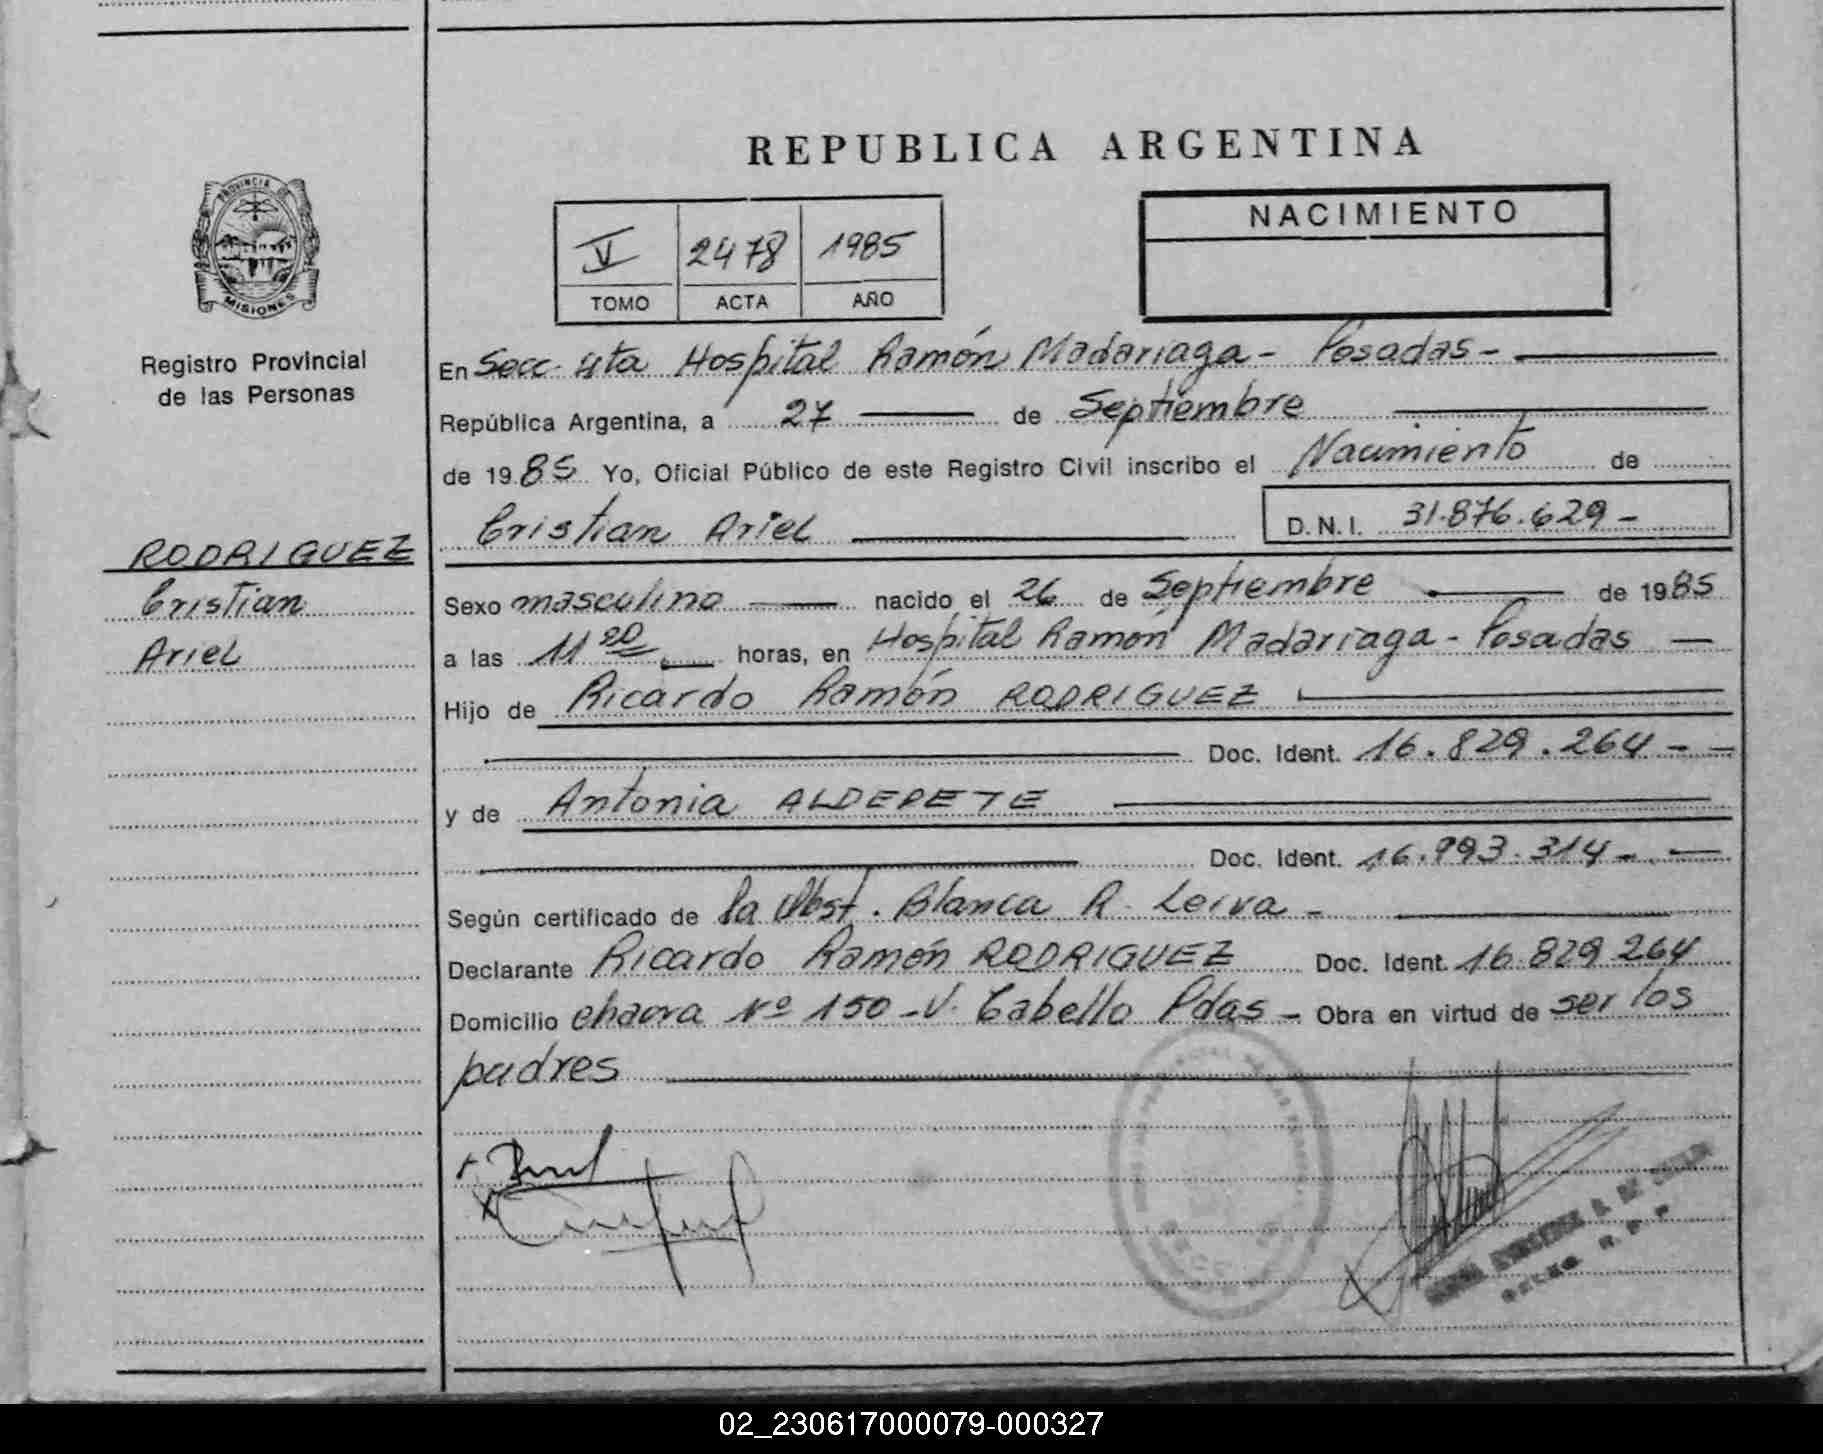 REPUBLICA ARGENTINA
PROVINCIA DE
MISIONES
Registro Provincial
de las Personas
V 2478 1985
TOMO ACTA AÑO
NACIMIENTO
En Secc. 4ta Hospital Ramón Madariaga - Posadas -
República Argentina, a 27 de Septiembre
de 1985 Yo, Oficial Público de este Registro Civil inscribo el Nacimiento de
Cristian Ariel D.N.I. 31.876.629 -
RODRIGUEZ
Cristian
Ariel
Sexo masculino nacido el 26 de Septiembre de 1985
a las 11 20 horas, en Hospital Ramón Madariaga - Posadas
Hijo de Ricardo Ramón RODRIGUEZ
Doc. Ident. 16.829.264 - -
y de Antonia ALDERETE
Doc. Ident. 16.993.314 -
Según certificado de la Obst. Blanca R. Leiva -
Declarante Ricardo Ramón RODRIGUEZ Doc. Ident. 16.829.264
Domicilio chacra Nº 150 - V. Cabello Pdas - Obra en virtud de ser los
padres
02_230617000079-000327